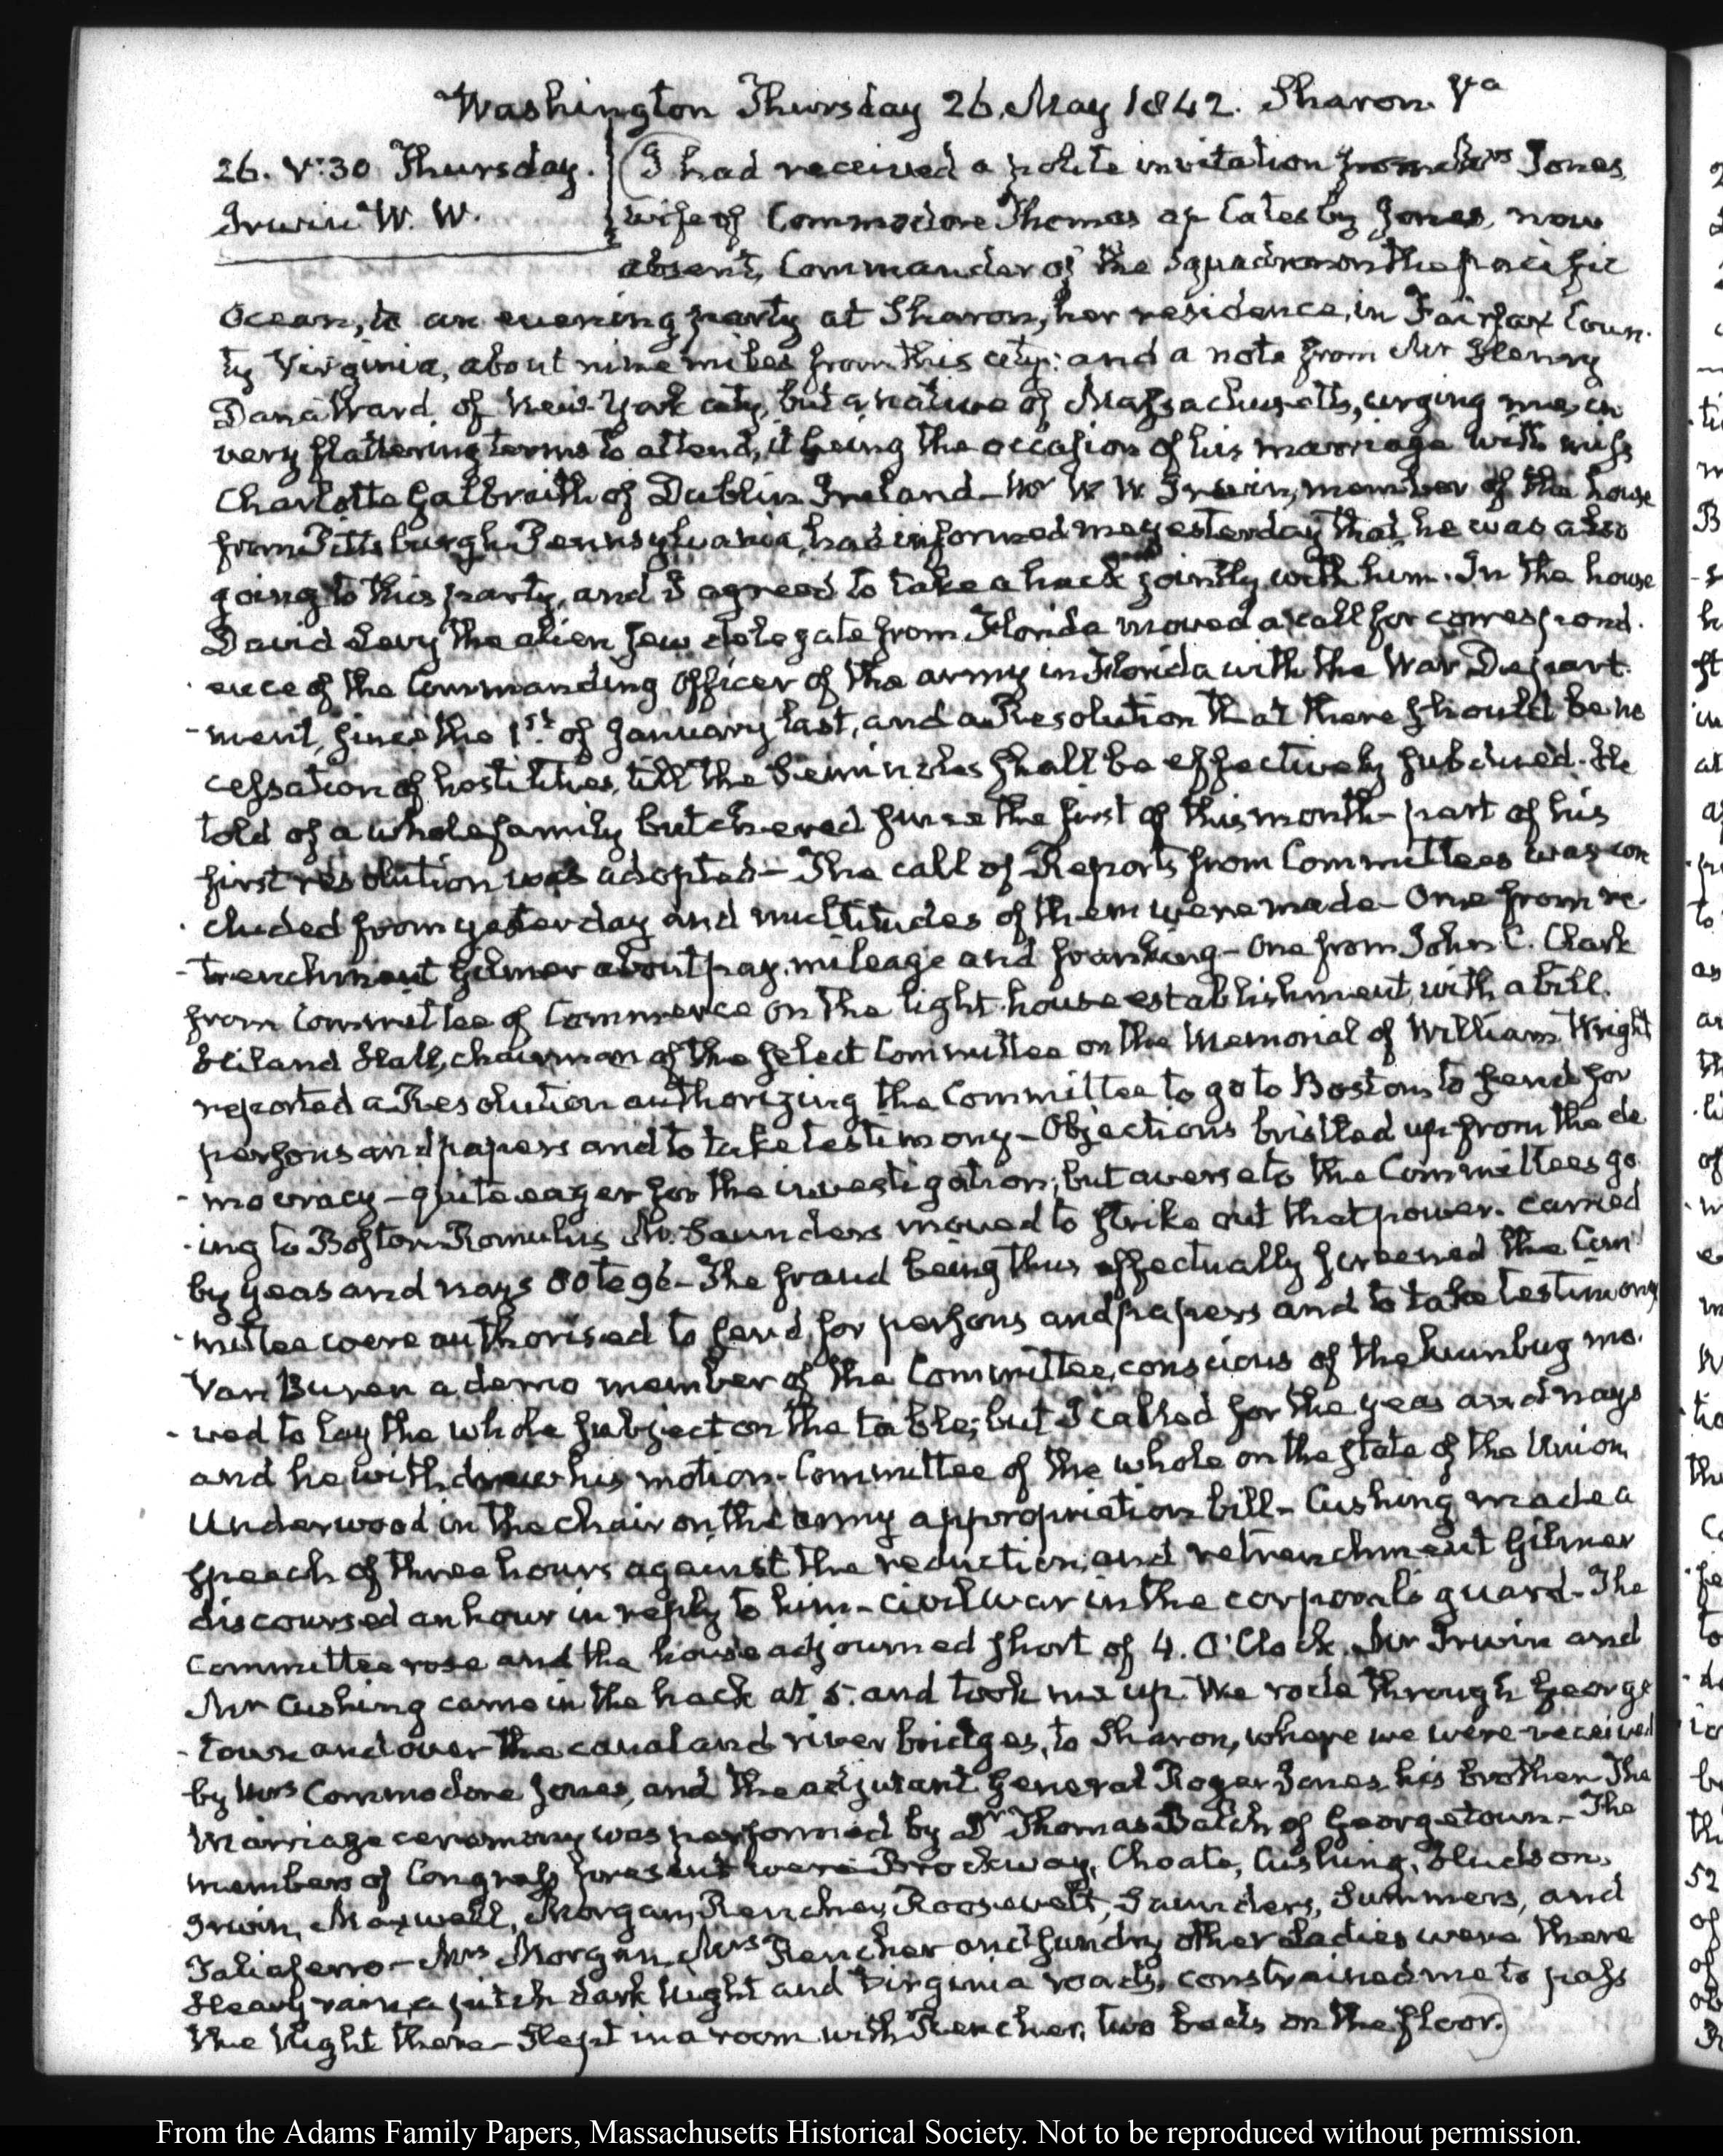 Washington Thursday 26. May 1842. Sharon. Va
26. V:30 Thursday.
Irwin W. W.
I had received a polite invitation from Mrs Jones,
wife of Commodore Thomas ap Catesby Jones, now
absent, Commander of the Squadron on the pacific
Ocean, to an evening party at Sharon, her residence, in Fairfax Coun-
ty Virginia, about nine miles from this city: and a note from Mr Henry
Dana Ward of New-York city, but a native of Massachusetts, urging me, in
very flattering terms to attend, it being the occasion of his marriage with miss
Charlotte Galbraith of Dublin Ireland_ Mr W W Irwin, member of the house
from Pittsburgh Pennsylvania, had informed me yesterday that he was also
going to this party, and I agreed to take a hack jointly with him. In the house
David Levy the alien Jew delegate from Florida moved a call for correspond-
ence of the Commanding Officer of the army in Florida with the War Depart-
ment, since the 1st. of January last, and a Resolution that there should be no
cessation of hostilities, till the Seminoles shall be effectively subdued. He
told of a whole family butchered since the first of this month- part of his
first resolution was adopted_ The call of Reports from Committees was con
cluded from yesterday and multitudes of them were made_ One from re-
trenchment Gilmer about pay, mileage and franking- one from John C. Clark
from Committee of Commerce on the light-house establishment, with a bill.
Hiland Hall, chairman of the select Committee on the Memorial of William Wright
reported a Resolution authorizing the Committee to go to Boston, to send for
persons and papers and to take testimony_ Objections bristled up from the de
mocracy_ quite eager for the investigation; but averse to the Committees go-
ing to Boston. Romulus M. Saunders moved to strike out that power. carried
by yeas and nays to_ The fraud being thus effectually screened the Com
mittee were authorised to send for persons and papers and to take testimony
Van Buren a demo member of the Committee, conscious of the humbug mo-
ved to lay the whole subject on the table; but I called for the yeas and nays
and he withdrew his motion. Committee of the whole on the state of the Union
Underwood in the chair on the army appropriation bill_ Cushing made a
speech of three hours against the reduction, and retrenchment Gilmer
discoursed an hour in reply to him_ civil war in the corporal's guard_ The
Committee rose and the house adjourned short of 4. O'Clock. Mr Irwin and
Mr Cushing came in the hack at 5. and took me up. We rode through George
town and over the canal and river bridges, to Sharon, where we were received
by Mrs Commodore Jones, and the adjutant General Roger Jones his brother. The
Marriage ceremony was performed by Dr Thomas Balch of Georgetown_ The
members of Congress present were Brockway, Choate, Cushing, Hudson,
Irwin, Maxwell, Morgan, Rencher, Roosevelt, Saunders, Summers, and
Taliaferro_ Mrs Morgan, Mrs Rencher and sundry other Ladies were there
Heavy rain, a pitch dark Night and Virginia roads, constrained me to pass
the Night there_ Slept in a room with Rencher, two beds on the floor.
From the Adams Family Papers, Massachusetts Historical Society. Not to be reproduced without permission.